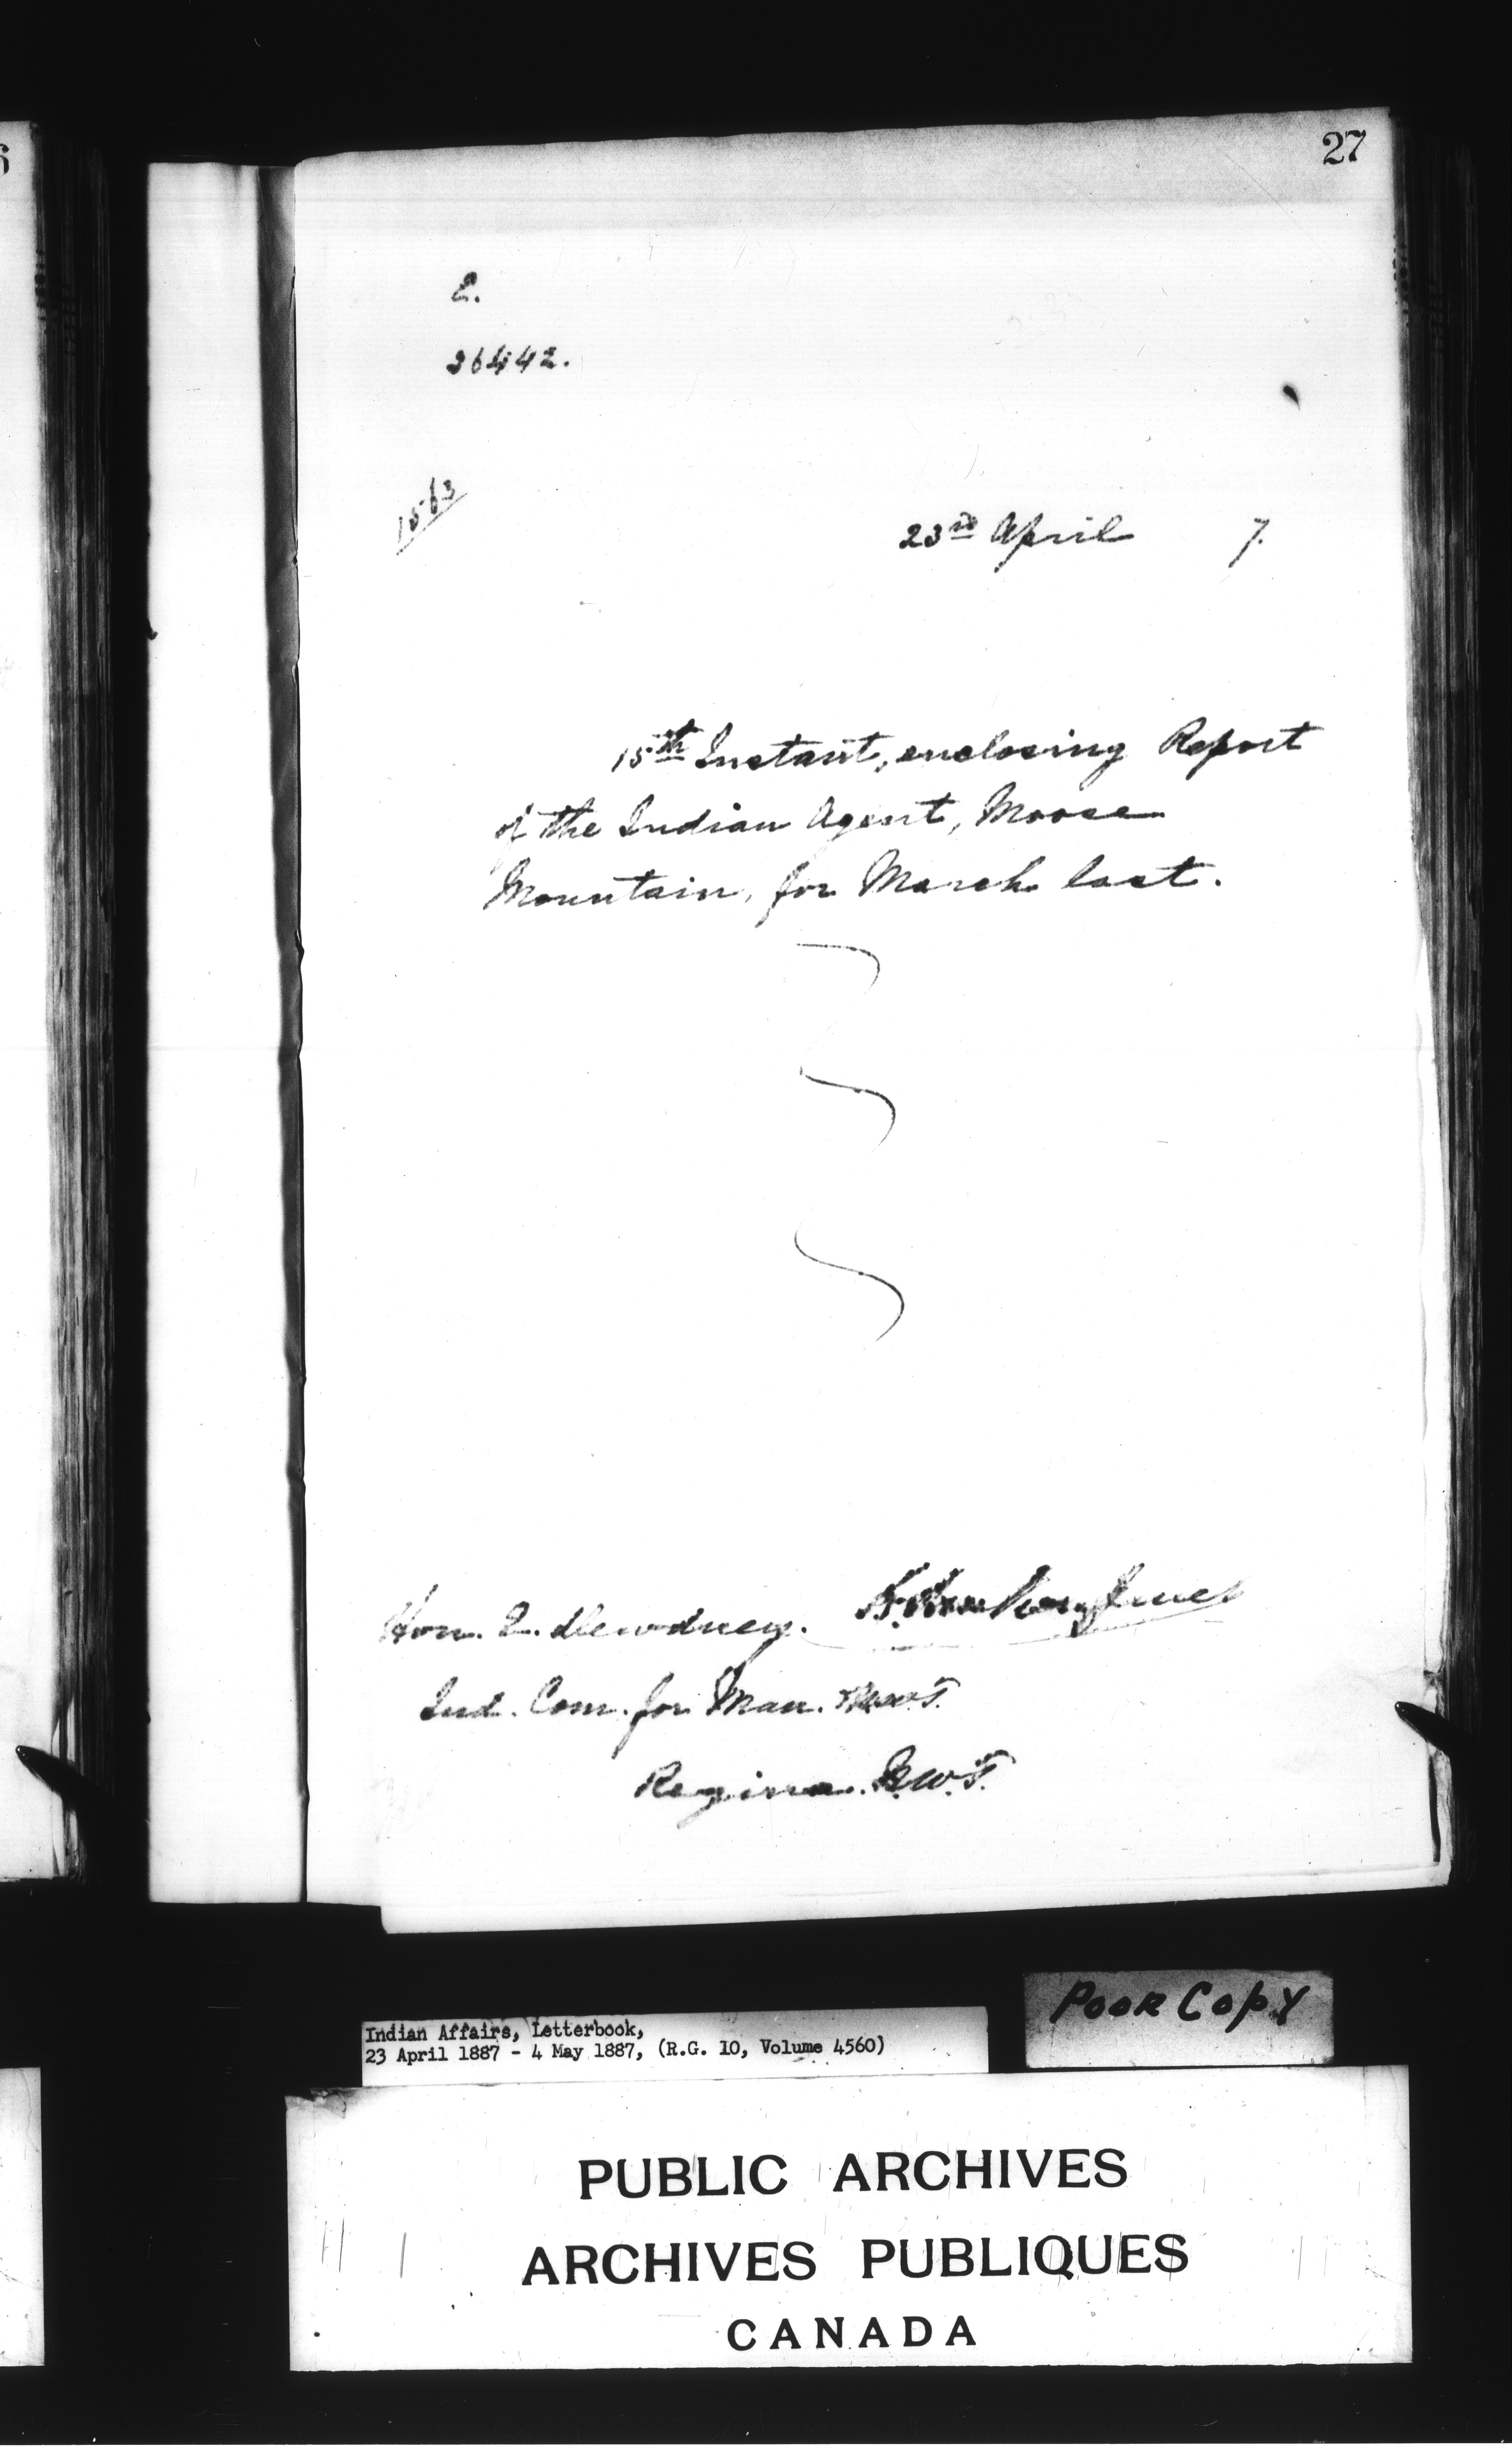 27
E.
36442.
1563
23rd April 7.
15th Instant, enclosing Report
of the Indian Agent, Moose
Mountain, for March last.
Hon. E. Dewdney.
Ind. Com. for Man. & N.W.T.
Regina. N.W.T.
POOR COPY
Indian Affairs, Letterbook,
23 April 1887 - 4 May 1887, (R.G. 10, Volume 4560)
PUBLIC ARCHIVES
ARCHIVES PUBLIQUES
CANADA